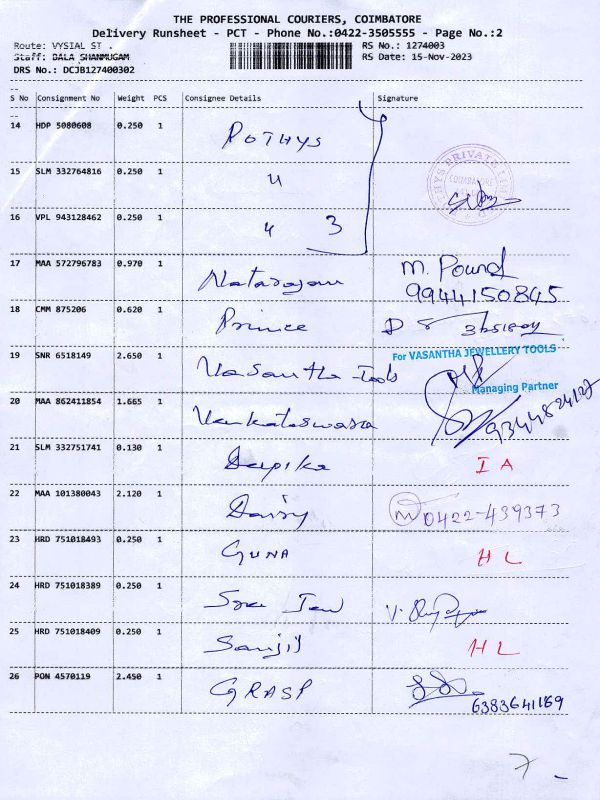 THE PROFESSIONAL COURIERS, COIMBATORE
Delivery Runsheet - PCT - Phone No.:0422-3505555 - Page No.:2
Route: VYSIAL ST .
RS No.: 1274003
Staff: BALA SHANMUGAM
RS Date: 15-Nov-2023
DRS No.: DCJB127400302
S No Consignment No Weight PCS Consignee Details Signature
14 HDP 5080608 0.250 1 POTHYS
15 SLM 332764816 0.250 1 "
16 VPL 943128462 0.250 1 " 3
17 MAA 572796783 0.970 1 Natarajan M. Pound
9944150845
18 CMM 875206 0.620 1 Prince
19 SNR 6518149 2.650 1 Vasantha Tools For VASANTHA JEWELLERY TOOLS
Managing Partner
20 MAA 862411854 1.665 1 Venkataswara 9344824127
21 SLM 332751741 0.130 1 Deepika I A
22 MAA 101380043 2.120 1 Daisy M 0422-439373
23 HRD 751018493 0.250 1 GUNA H L
24 HRD 751018389 0.250 1 Sree Jew
25 HRD 751018409 0.250 1 Sanjit H L
26 PON 4570119 2.450 1 GRASP
6383641169
7